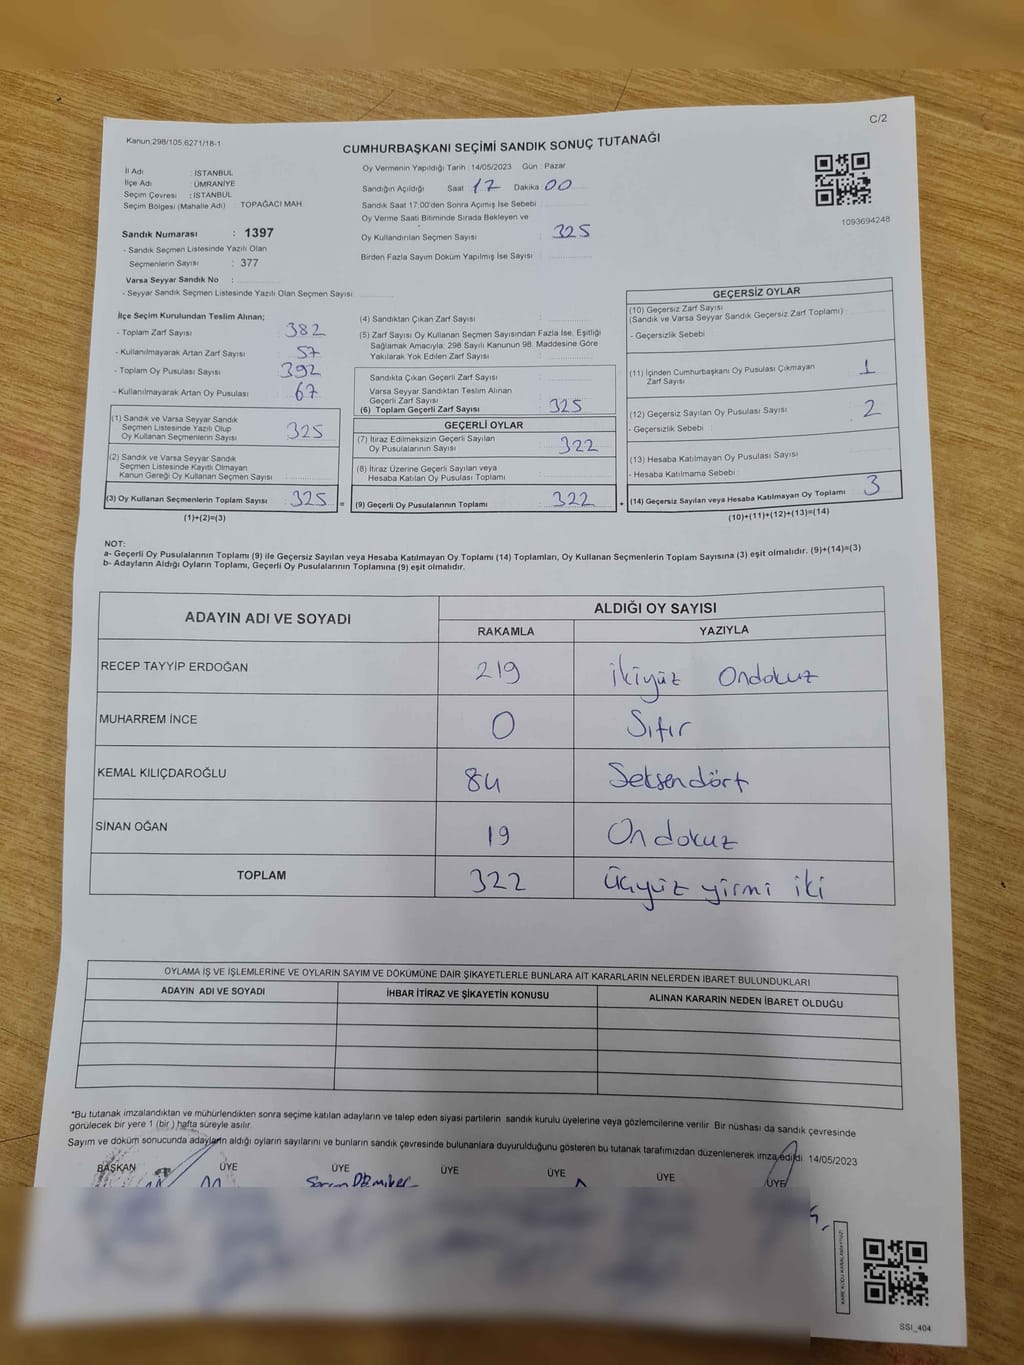 C/2
Kanun:298/105,6271/18-1
CUMHURBAŞKANI SEÇİMİ SANDIK SONUÇ TUTANAĞI
İl Adı : İSTANBUL
İlçe Adı : ÜMRANİYE
Seçim Çevresi : İSTANBUL
Seçim Bölgesi (Mahalle Adı) TOPAĞACI MAH.
Sandık Numarası : 1397
- Sandık Seçmen Listesinde Yazılı Olan
Seçmenlerin Sayısı : 377
Varsa Seyyar Sandık No :
- Seyyar Sandık Seçmen Listesinde Yazılı Olan Seçmen Sayısı
Oy Vermenin Yapıldığı Tarih : 14/05/2023 Gün : Pazar
Sandığın Açıldığı Saat 17 Dakika 00
Sandık Saat 17:00'den Sonra Açımış İse Sebebi
Oy Verme Saati Bitiminde Sırada Bekleyen ve
Oy Kullandırılan Seçmen Sayısı : 325
Birden Fazla Sayım Döküm Yapılmış İse Sayısı
1093694248
İlçe Seçim Kurulundan Teslim Alınan;
- Toplam Zarf Sayısı 382
- Kullanılmayarak Artan Zarf Sayısı 57
- Toplam Oy Pusulası Sayısı 392
- Kullanılmayarak Artan Oy Pusulası 67
(1) Sandık ve Varsa Seyyar Sandık
Seçmen Listesinde Yazılı Olup
Oy Kullanan Seçmenlerin Sayısı 325
(2) Sandık ve Varsa Seyyar Sandık
Seçmen Listesinde Kayıtlı Olmayan
Kanun Gereği Oy Kullanan Seçmen Sayısı
(3) Oy Kullanan Seçmenlerin Toplam Sayısı 325 =
(1)+(2)=(3)
(4) Sandıktan Çıkan Zarf Sayısı :
(5) Zarf Sayısı Oy Kullanan Seçmen Sayısından Fazla İse, Eşitliği
Sağlamak Amacıyla, 298 Sayılı Kanunun 98. Maddesine Göre
Yakılarak Yok Edilen Zarf Sayısı :
Sandıkta Çıkan Geçerli Zarf Sayısı :
Varsa Seyyar Sandıktan Teslim Alınan
Geçerli Zarf Sayısı
(6) Toplam Geçerli Zarf Sayısı : 325
GEÇERLİ OYLAR
(7) İtiraz Edilmeksizin Geçerli Sayılan
Oy Pusulalarının Sayısı : 322
(8) İtiraz Üzerine Geçerli Sayılan veya
Hesaba Katılan Oy Pusulası Toplamı
(9) Geçerli Oy Pusulalarının Toplamı : 322 +
GEÇERSİZ OYLAR
(10) Geçersiz Zarf Sayısı
(Sandık ve Varsa Seyyar Sandık Geçersiz Zarf Toplamı)
- Geçersizlik Sebebi
(11) İçinden Cumhurbaşkanı Oy Pusulası Çıkmayan
Zarf Sayısı 1
(12) Geçersiz Sayılan Oy Pusulası Sayısı 2
- Geçersizlik Sebebi
(13) Hesaba Katılmayan Oy Pusulası Sayısı
- Hesaba Katılmama Sebebi
(14) Geçersiz Sayılan veya Hesaba Katılmayan Oy Toplamı 3
(10)+(11)+(12)+(13)=(14)
NOT:
a- Geçerli Oy Pusulalarının Toplamı (9) ile Geçersiz Sayılan veya Hesaba Katılmayan Oy Toplamı (14) Toplamları, Oy Kullanan Seçmenlerin Toplam Sayısına (3) eşit olmalıdır. (9)+(14)=(3)
b- Adayların Aldığı Oyların Toplamı, Geçerli Oy Pusulalarının Toplamına (9) eşit olmalıdır.
ADAYIN ADI VE SOYADI ALDIĞI OY SAYISI
RAKAMLA YAZIYLA
RECEP TAYYİP ERDOĞAN 219 İkiyüz Ondokuz
MUHARREM İNCE 0 Sıfır
KEMAL KILIÇDAROĞLU 84 Seksendört
SİNAN OĞAN 19 Ondokuz
TOPLAM 322 Üçyüz yirmi iki
OYLAMA İŞ VE İŞLEMLERİNE VE OYLARIN SAYIM VE DÖKÜMÜNE DAİR ŞİKAYETLERLE BUNLARA AİT KARARLARIN NELERDEN İBARET BULUNDUKLARI
ADAYIN ADI VE SOYADI İHBAR İTİRAZ VE ŞİKAYETİN KONUSU ALINAN KARARIN NEDEN İBARET OLDUĞU
*Bu tutanak imzalandıktan ve mühürlendikten sonra seçime katılan adayların ve talep eden siyasi partilerin sandık kurulu üyelerine veya gözlemcilerine verilir. Bir nüshası da sandık çevresinde
görülecek bir yere 1 (bir ) hafta süreyle asılır.
Sayım ve döküm sonucunda adayların aldığı oyların sayılarını ve bunların sandık çevresinde bulunanlara duyurulduğunu gösteren bu tutanak tarafımızdan düzenlenerek imza edildi. 14/05/2023
BAŞKAN ÜYE ÜYE ÜYE ÜYE ÜYE ÜYE
SSI_404